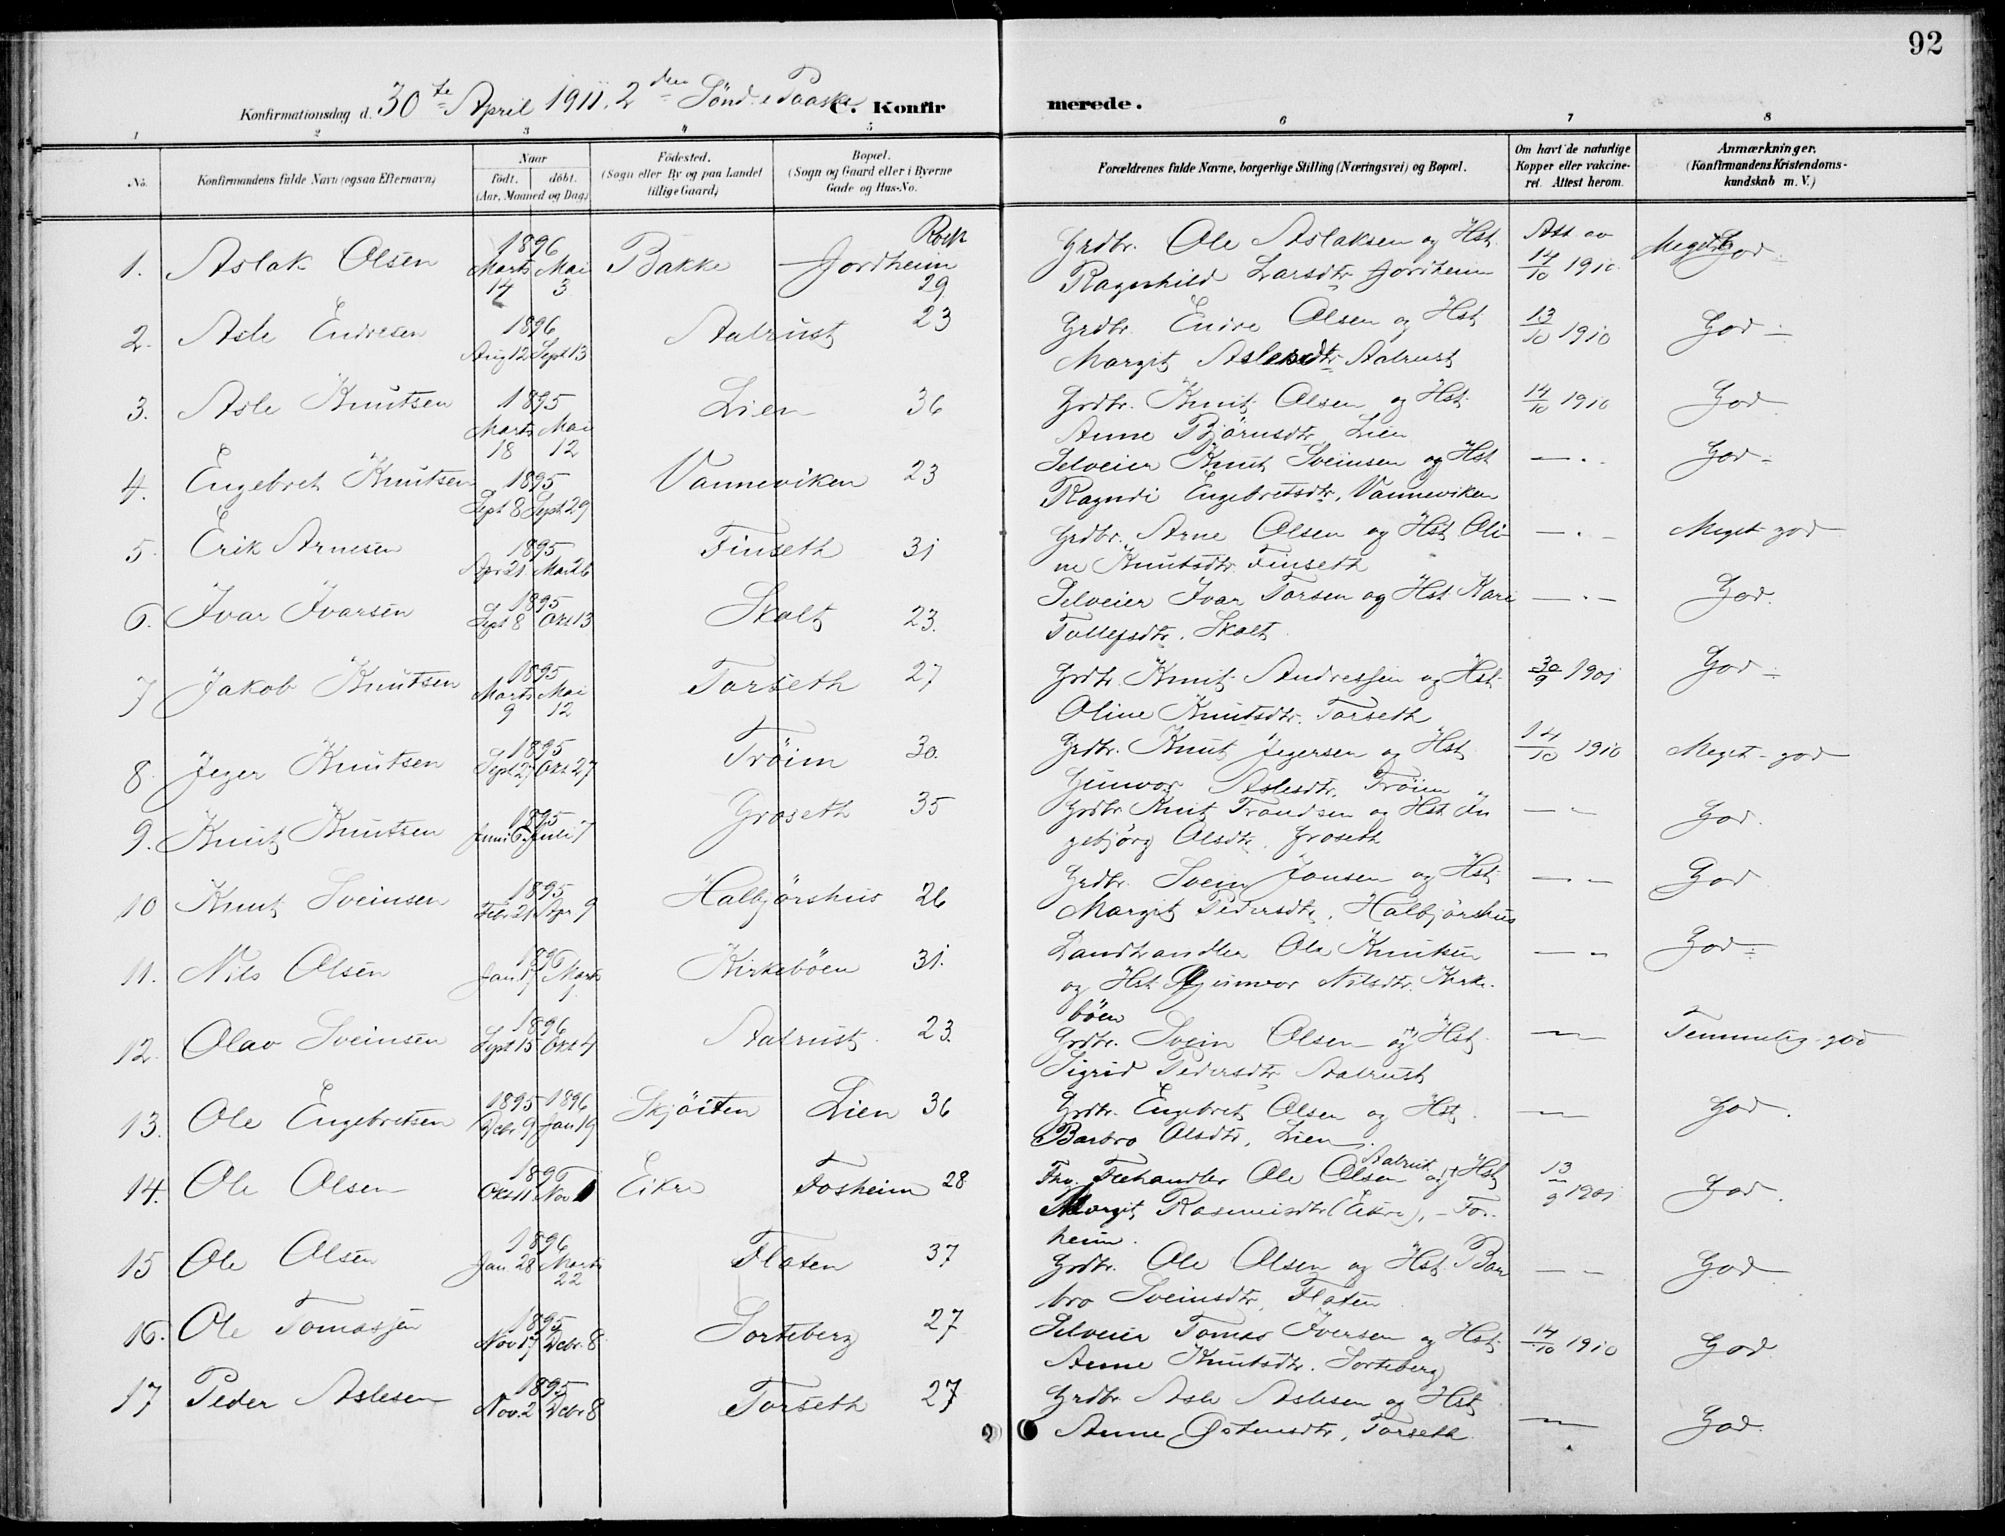 92
Konfirmationsdag d. 30te April 1911. 2den Sönd. e Paaske C. Konfirmerede.
1 2 3 4 5 6 7 8
No. Konfirmandens fulde Navn (ogsaa Efternavn) Naar födt. döbt. (Aar, Maaned og Dag) Födested. (Sogn eller By og paa Landet tillige Gaard) Bopæl. (Sogn og Gaard eller i Byerne Gade og Hus-No. Forældrenes fulde Navne, borgerlige Stilling (Næringsvei) og Bopæl. Om havt de naturlige Kopper eller vakcineret. Attest herom. Anmærkninger. (Konfirmandens Kristendomskundskab m. V.)
1. Aslak Olsen 1896 Marts 14 Mai 3 Bakke Jordheim 29 Grdbr. Ole Aslaksen og Hst. Att av 14/10 1910 Meget God
Ragnhild Larsdtr Jordheim
2. Asle Endresen 1896 Aug 12 Sept 13 Aalrust 23 Grdbr. Endre Olsen og Hst 13/10 1910 God
Margit Aslesdtr Aalrust
3. Asle Knutsen 1895 Marts 18 Mai 12 Lien 36 Grdbr. Knut Olsen og Hst. 14/10 1910 God
Anne Björnsdtr. Lien
4. Engebret Knutsen 1895 Sept 8 Sept 29 Vanneviken 23 Selveier Knut Sveinsen og Hst — . - God
Ragndi Engebretsdtr. Vanneviken
5. Erik Arnesen 1895 Apr 21 Mai 26 Finseth 31 Grdbr. Arne Olsen og Hst Oli- — . - Meget god
ne Knutsdtr. Finseth
6. Ivar Ivarsen 1895 Sept 8 Okt 13 Skolt 23. Selveier Ivar Torsen og Hst Kari — . - God.
Tollefsdtr. Skolt.
7 Jakob Knutsen 1895 Marts 9 Mai 12 Torseth 27 Grdbr Knut Andressen og Hst. 30/9 1901 God
Oline Knutsdtr. Torseth
8. Jeger Knutsen 1895 Sept 27 Okt 27 Tröim 30. Grdbr. Knut Jegersen og Hst. 14/10 1910 Meget - god
Gunvor Aslesdtr. Tröim
9. Knut Knutsen 1895 Juni 6 Juli 7 Groseth 35 Grdbr Knut Trondsen og Hst In — - God.
gebjörg Olsdtr. Groseth
10 Knut Sveinsen 1895 Febr 21 Apr 9 Halbjörshus 26 Grdbr. Svein Jonsen og Hst. — - God
Margit Pedersdtr, Halbjörshus
11. Nils Olsen 1896 Jan 17 Marts Kirkeböen 31. Landhandler Ole Knutsen — - God
og Hst Gunvor Nilsdtr. Kirke-
böen
12. Olav Sveinsen 1896 Sept 15 Okt 4 Aalrust 23. Grdbr. Svein Olsen og Hst. — Temmelig god
Sigrid Pedersdtr Aalrust
13. Ole Engebretsen 1895 Debr 9 1896 Jan 19 Skjöiten Lien 36 Grdbr. Engebret Olsen og Hst. — God.
Barbro Olsdtr, Lien.
14. Ole Olsen 1896 Okt 11 Nov 1 Eikre Fosheim 28 Fhv. Fæhandler Ole Olsen Aalrust og Hst 13/9 1901 God.
Margit Rasmusdtr (Eikre), - Fos-
heim.
15 Ole Olsen 1896 Jan 28 Marts 22 Flaten 37 Grdbr. Ole Olsen og Hst. Bar — - God
bro Sveinsdtr, Flaten
16. Ole Tomassen 1895 Nov 17 Debr. 8 Sorteberg 27 Selveier Tomas Iversen og Hst. 14/10 1910 God
Anne Knutsdtr. Sorteberg
17 Peder Aslesen 1895 Nov. 2 Debr 8 Torseth 27 Grdbr Asle Aslesen og Hst — God.
Anne Østensdtr, Torseth.